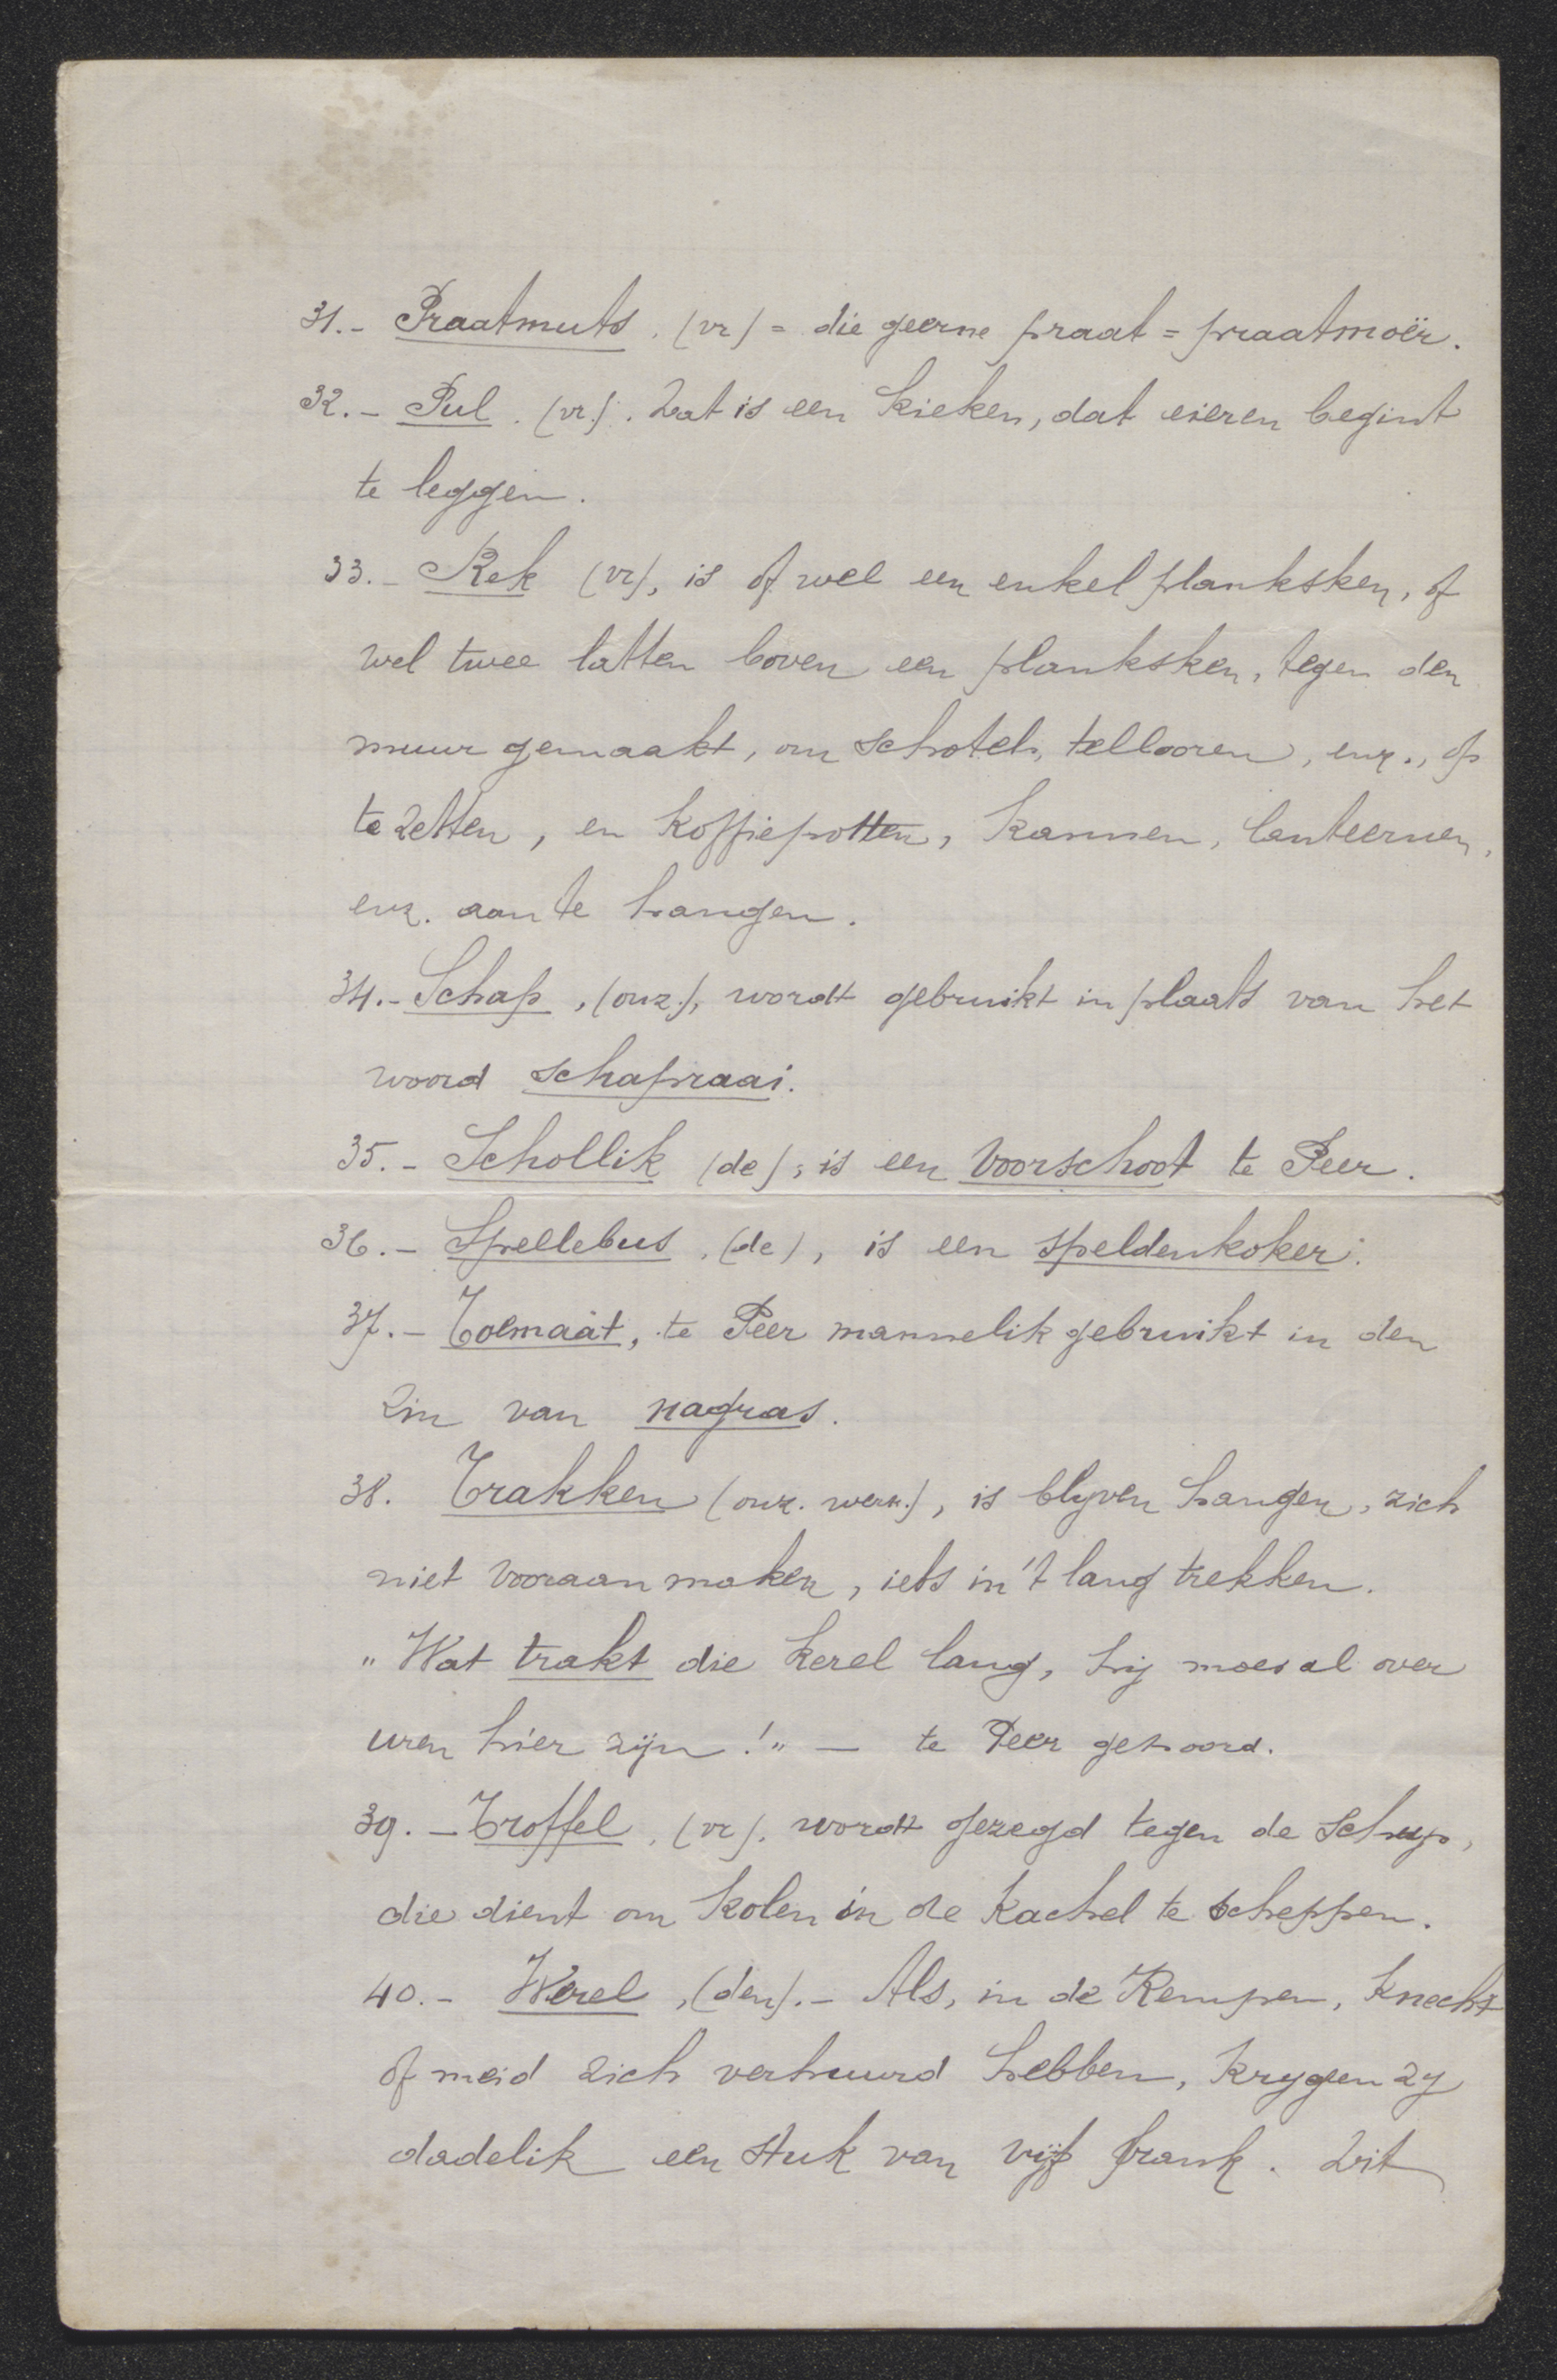 31.- Praatmuts. (vr) = die geerne praat = praatmoër.
32.- Pul. (vr.). Dat is een kieken, dat eieren begint
te leggen.
33.- Rek (vr), is of wel een enkel planksken, of
wel twee latten boven een planksken, tegen den
muur gemaakt, om schotels, tellooren, enz., op
te zetten, en koffiepotten, kannen, lanteernen,
enz. aan te hangen.
34.- Schap, (onz.), wordt gebruikt in plaats van het
woord schapraai.
35.- Schollik (de), is een voorschoot te Peer.
36.- Spellebus, (de), is een speldenkoker.
37.- Toemaat, te Peer mannelik gebruikt in den
zin van nagras.
38. Trakken (onz. werk.), is blyven hangen, zich
niet vooraan maken, iets in 't lang trekken.
"Wat trakt die kerel lang, hij moes al over
uren hier zijn!" — te Peer gehoord.
39. - Troffel, (vr), wordt gezegd tegen de schup,
die dient om kolen in de kachel te scheppen.
40.- Werel, (den).- Als, in de Kempen, knecht
of meid zich verhuurd hebben, krygen zy
dadelik een stuk van vijf frank. Dit